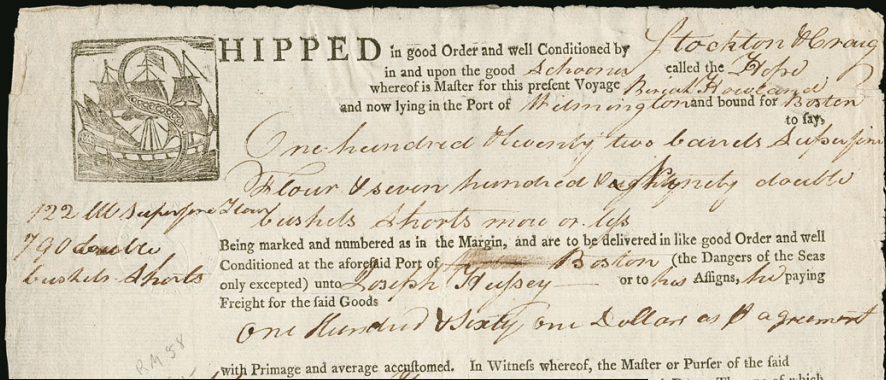 SHIPPED in good Order and well Conditioned by Stockton & Craig
in and upon the good Schooner called the Hope
whereof is Master for this present Voyage Howland
and now lying in the Port of Wilmington and bound for Boston
to say,
One hundred & twenty two barrels Superfine
Flour & seven hundred & ninety double
bushels Shorts more or less
122 bbl Superfine Flour
790 double
bushels Shorts
Being marked and numbered as in the Margin, and are to be delivered in like good Order and well
Conditioned at the aforesaid Port of Boston (the Dangers of the Seas
only excepted) unto Joseph Hussey or to his Assigns, he paying
Freight for the said Goods
One Hundred & Sixty One Dollars as P agreement
R.M 58
with Primage and average accustomed. In Witness whereof, the Master or Purser of the said
of which